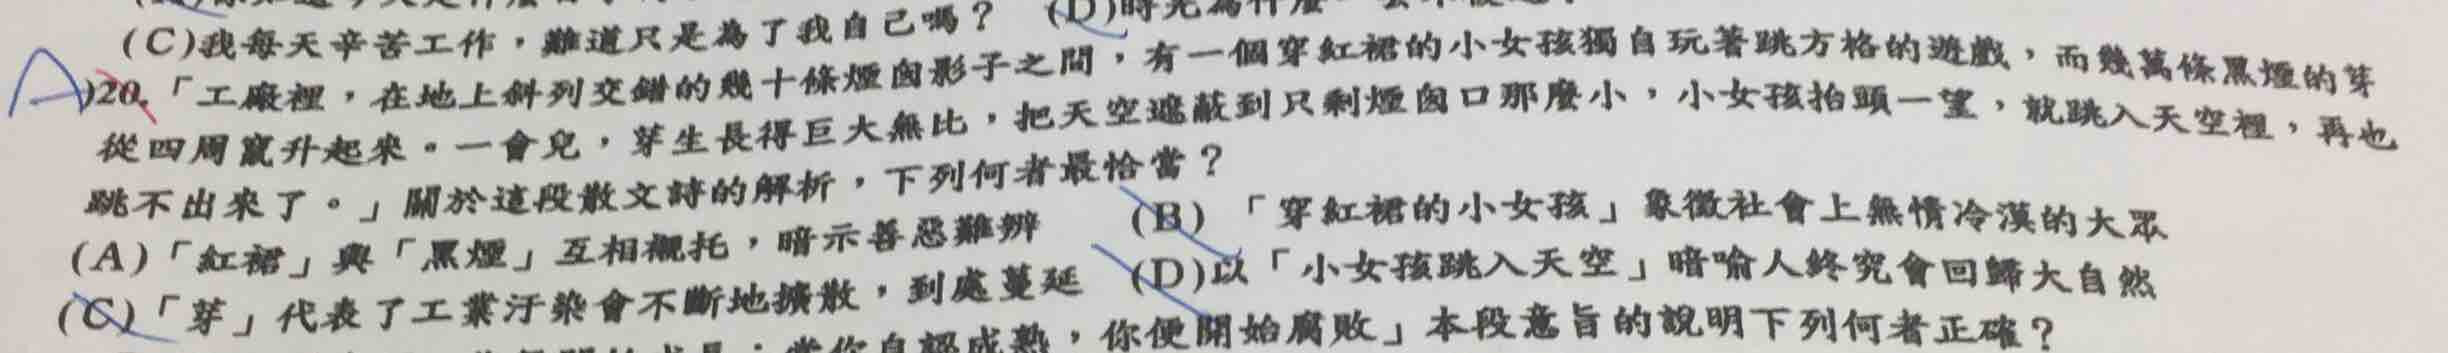 (C)我每天辛苦工作，難道只是為了我自己嗎？ (D)時光為什麼
A)20.「工廠裡，在地上斜列交錯的幾十條煙囪影子之間，有一個穿紅裙的小女孩獨自玩著跳方格的遊戲，而幾萬條黑煙的芽
從四周竄升起來。一會兒，芽生長得巨大無比，把天空遮蔽到只剩煙囪口那麼小，小女孩抬頭一望，就跳入天空裡，再也
跳不出來了。」關於這段散文詩的解析，下列何者最恰當？
(A)「紅裙」與「黑煙」互相襯托，暗示善惡難辨 (B)「穿紅裙的小女孩」象徵社會上無情冷漠的大眾
(C)「芽」代表了工業汙染會不斷地擴散，到處蔓延 (D)以「小女孩跳入天空」暗喻人終究會回歸大自然
當你自認成熟，你便開始腐敗」本段意旨的說明下列何者正確？